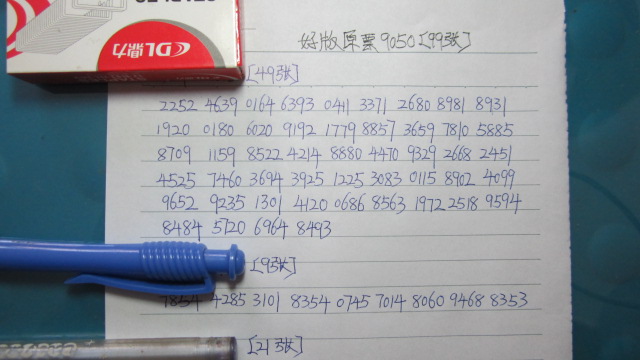 好版原票9050[99张]
CDL鼎力
[49张]
2252 4639 0164 6393 0411 3371 2680 8981 8931
1920 0180 6020 9192 1779 8857 3659 7810 5885
8709 1159 8522 4214 8880 4470 9329 2668 2451
4525 7460 3694 3925 1225 3083 0115 8902 4099
9652 9235 1301 4120 0686 8563 1972 2518 9594
8484 5720 6964 8493
[9张]
7854 4285 3101 8354 0745 7014 8060 9468 8353
[21张]